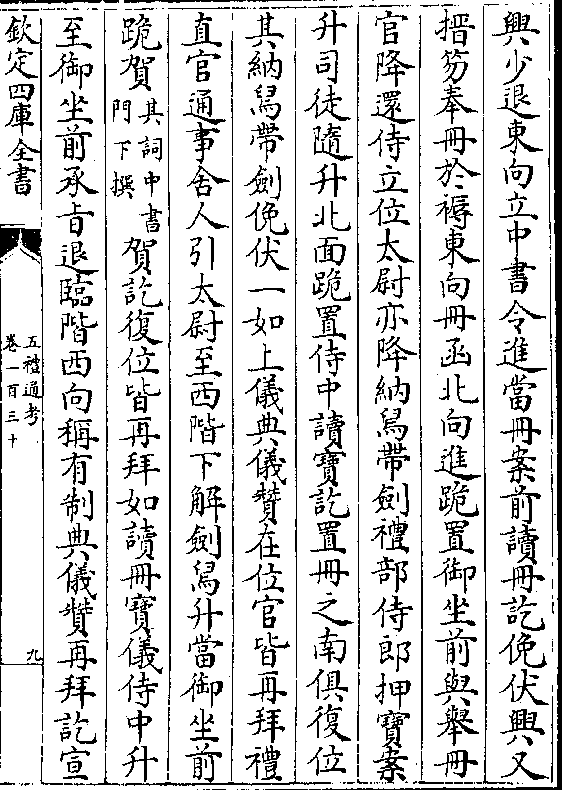 興少退東向立中書令進當冊案前讀冊訖俛伏興又
搢笏奉冊於褥東向冊函北向進跪置御坐前與舉冊
官降還侍立位太尉亦降納舄帶劍禮部侍郎押寶案
升司徒隨升北面跪置侍中讀寶訖置冊之南俱復位
其納舄帶劍俛伏一如上儀典儀贊在位官皆再拜禮
直官通事舍人引太尉至西階下解劍舄升當御坐前
跪賀其詞中書門下撰賀訖復位皆再拜如讀冊寶儀侍中升
至御坐前承旨退臨階西向稱有制典儀贊再拜訖宣
欽定四庫全書
五禮通考
卷一百三十
九